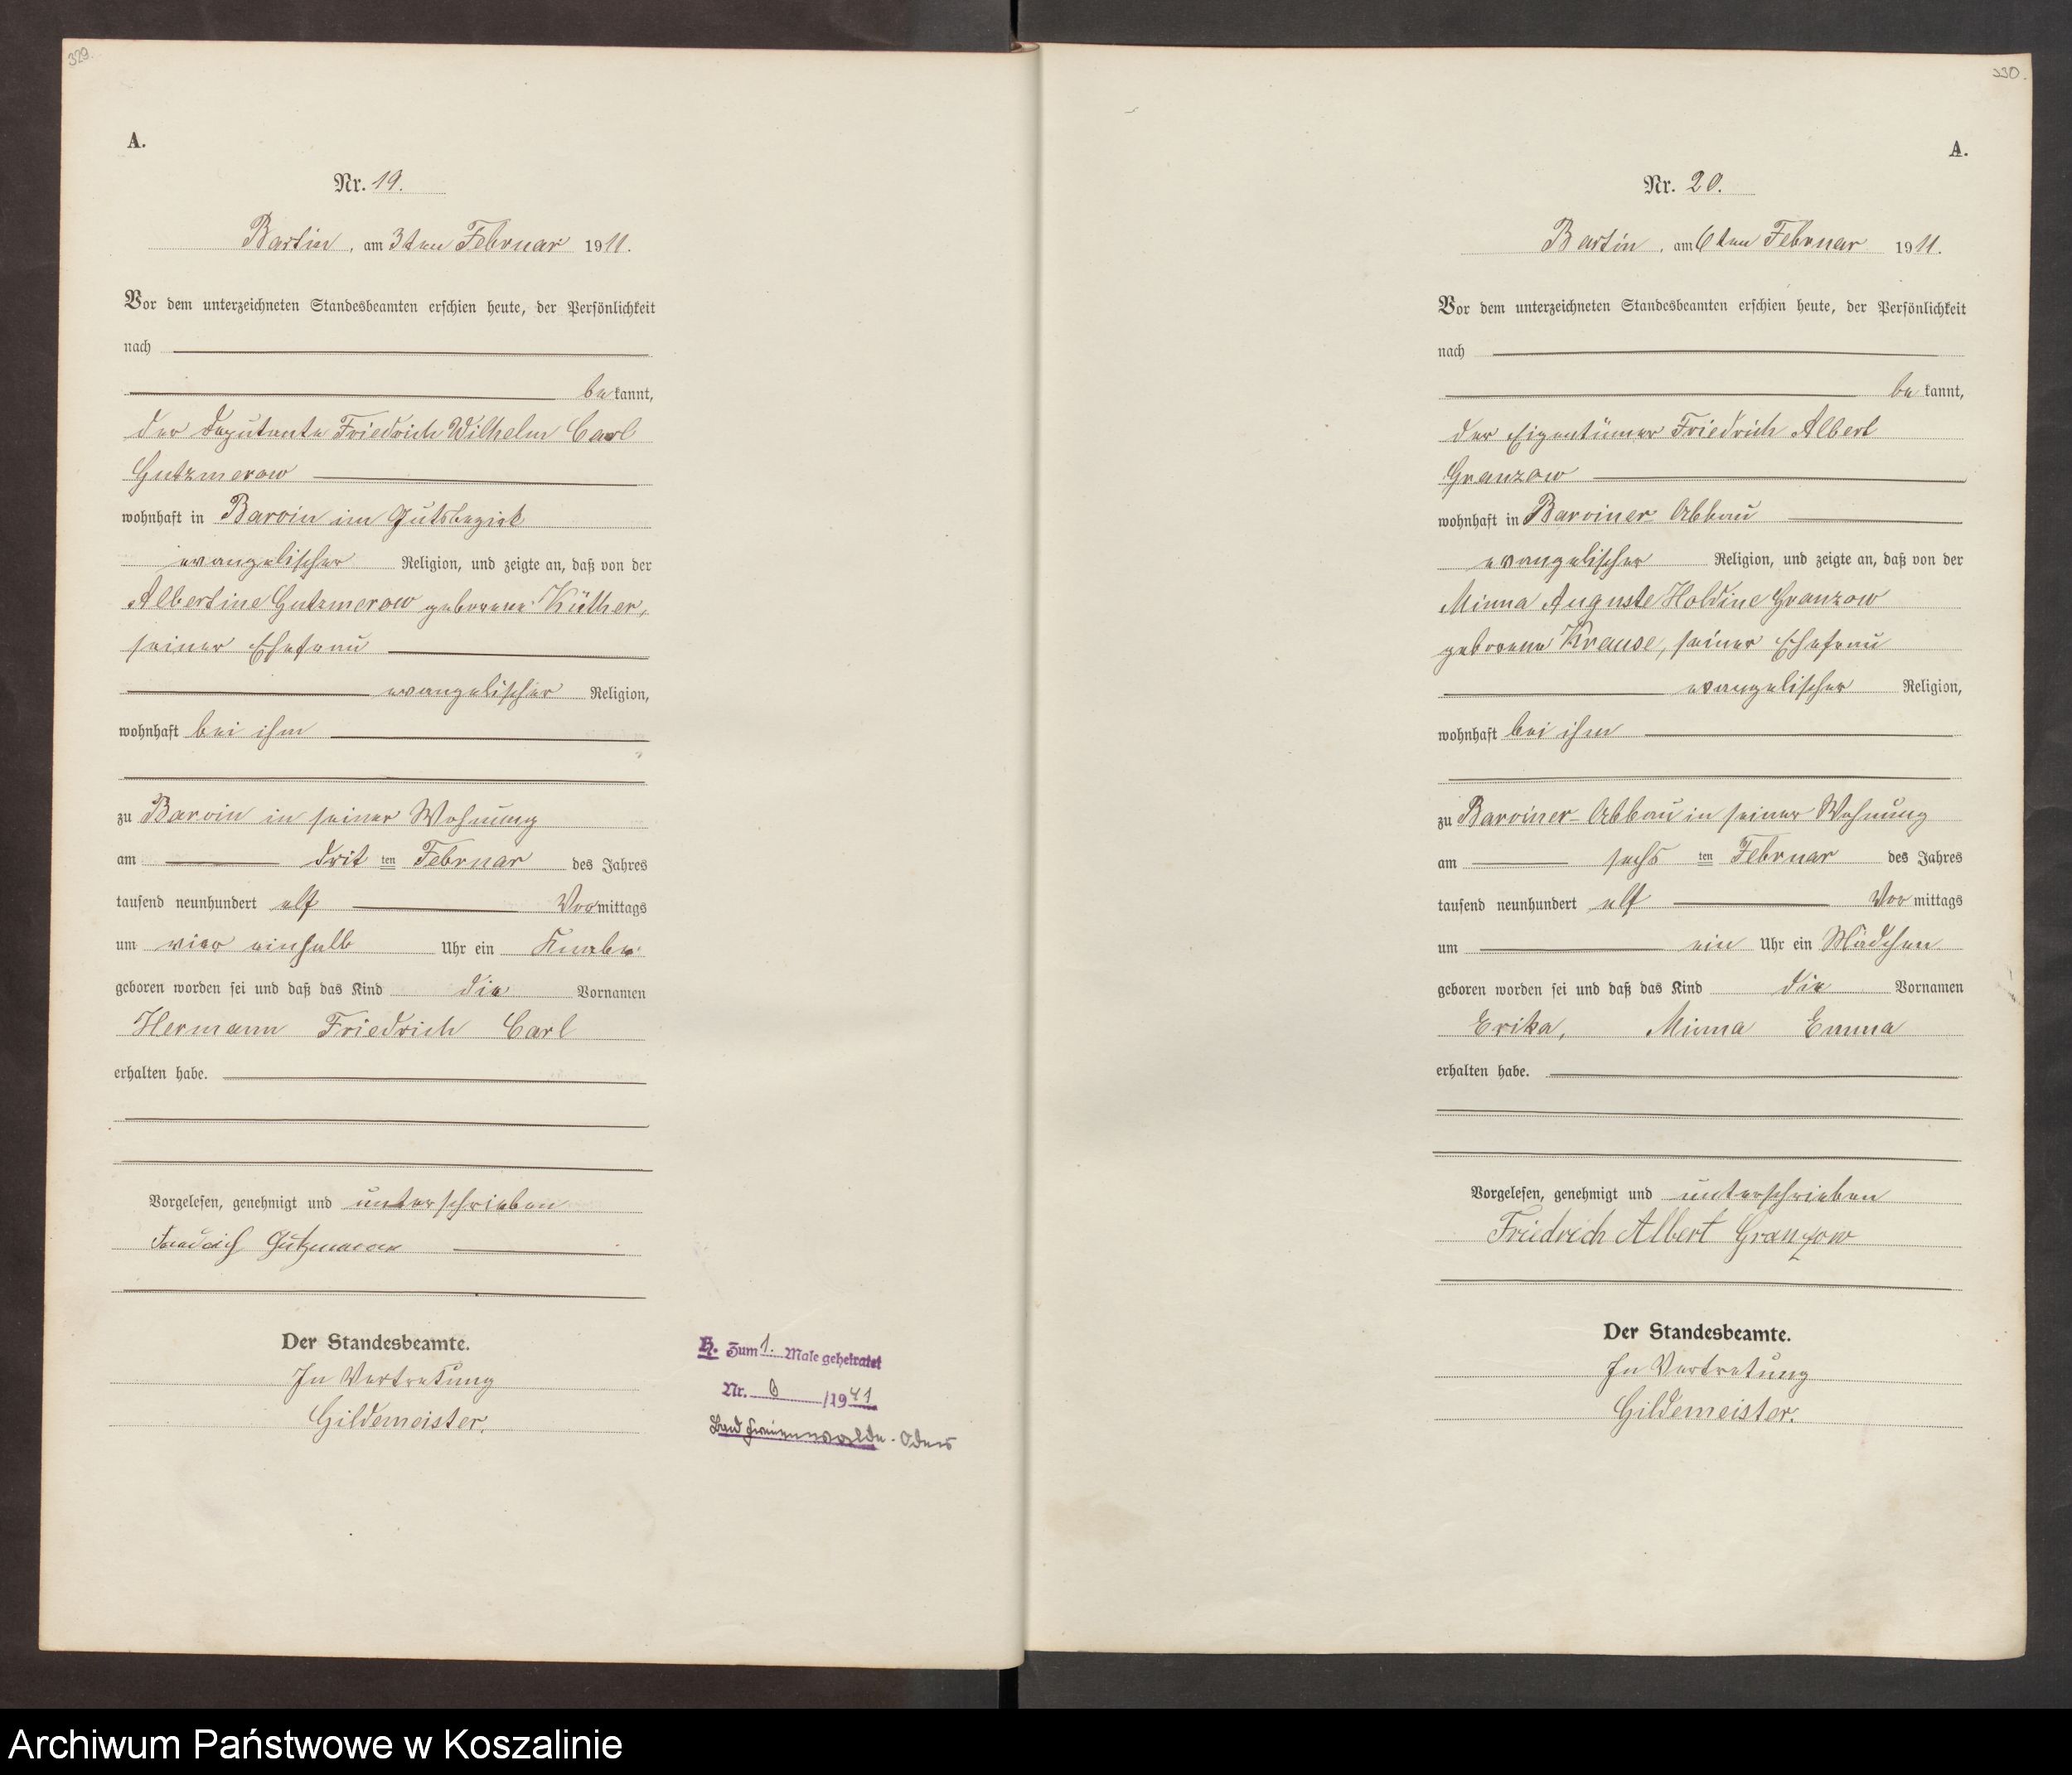 329.
A.
Nr. 19.
Bartin, am 3ten Februar 1911.
Vor dem unterzeichneten Standesbeamten erschien heute, der Persönlichkeit
nach
bekannt,
der Deputante Friedrich Wilhelm Carl
Gutzmerow
wohnhaft in Barvin im Gutsbezirk
evangelischer Religion, und zeigte an, daß von der
Albertine Gutzmerow geborene Küther,
seiner Ehefrau
evangelischer Religion,
wohnhaft bei ihm
zu Barvin in seiner Wohnung
am drit ten Februar des Jahres
tausend neunhundert elf Vormittags
um vier einhalb Uhr ein Knabe
geboren worden sei und daß das Kind die Vornamen
Hermann Friedrich Carl
erhalten habe.
Vorgelesen, genehmigt und unterschrieben
Friedrich Gutzmerow
Der Standesbeamte.
In Vertretung
Gildemeister.
H. Zum 1. Male geheiratet
Nr. 6 /1941
Bad Freienwalde - Oder
330.
A.
Nr. 20.
Bartin, am 6ten Februar 1911.
Vor dem unterzeichneten Standesbeamten erschien heute, der Persönlichkeit
nach
bekannt,
der Eigentümer Friedrich Albert
Granzow
wohnhaft in Barviner Abbau
evangelischer Religion, und zeigte an, daß von der
Minna Auguste Holdine Granzow
geborene Krause, seiner Ehefrau
evangelischer Religion,
wohnhaft bei ihm
zu Barviner-Abbau in seiner Wohnung
am sechs ten Februar des Jahres
tausend neunhundert elf Vormittags
um ein Uhr ein Mädchen
geboren worden sei und daß das Kind die Vornamen
Erika, Minna Emma
erhalten habe.
Vorgelesen, genehmigt und unterschrieben
Friedrich Albert Granzow
Der Standesbeamte.
In Vertretung
Gildemeister.
Archiwum Państwowe w Koszalinie